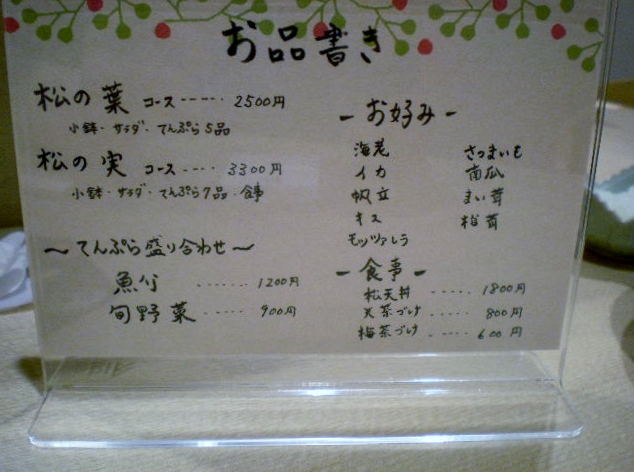 お品書き
松の葉 コース ----- 2500円
小鉢・サラダ・てんぷら5品
松の実 コース ----- 3300円
小鉢・サラダ・てんぷら7品・食事
〜てんぷら盛り合わせ〜
魚介 ------ 1200円
旬野菜 ----- 900円
- お好み -
海老 さつまいも
イカ 南瓜
帆立 まい茸
キス 椎茸
モッツァレラ
- 食事 -
松天丼 ----- 1800円
天茶づけ ----- 800円
梅茶づけ ----- 600円